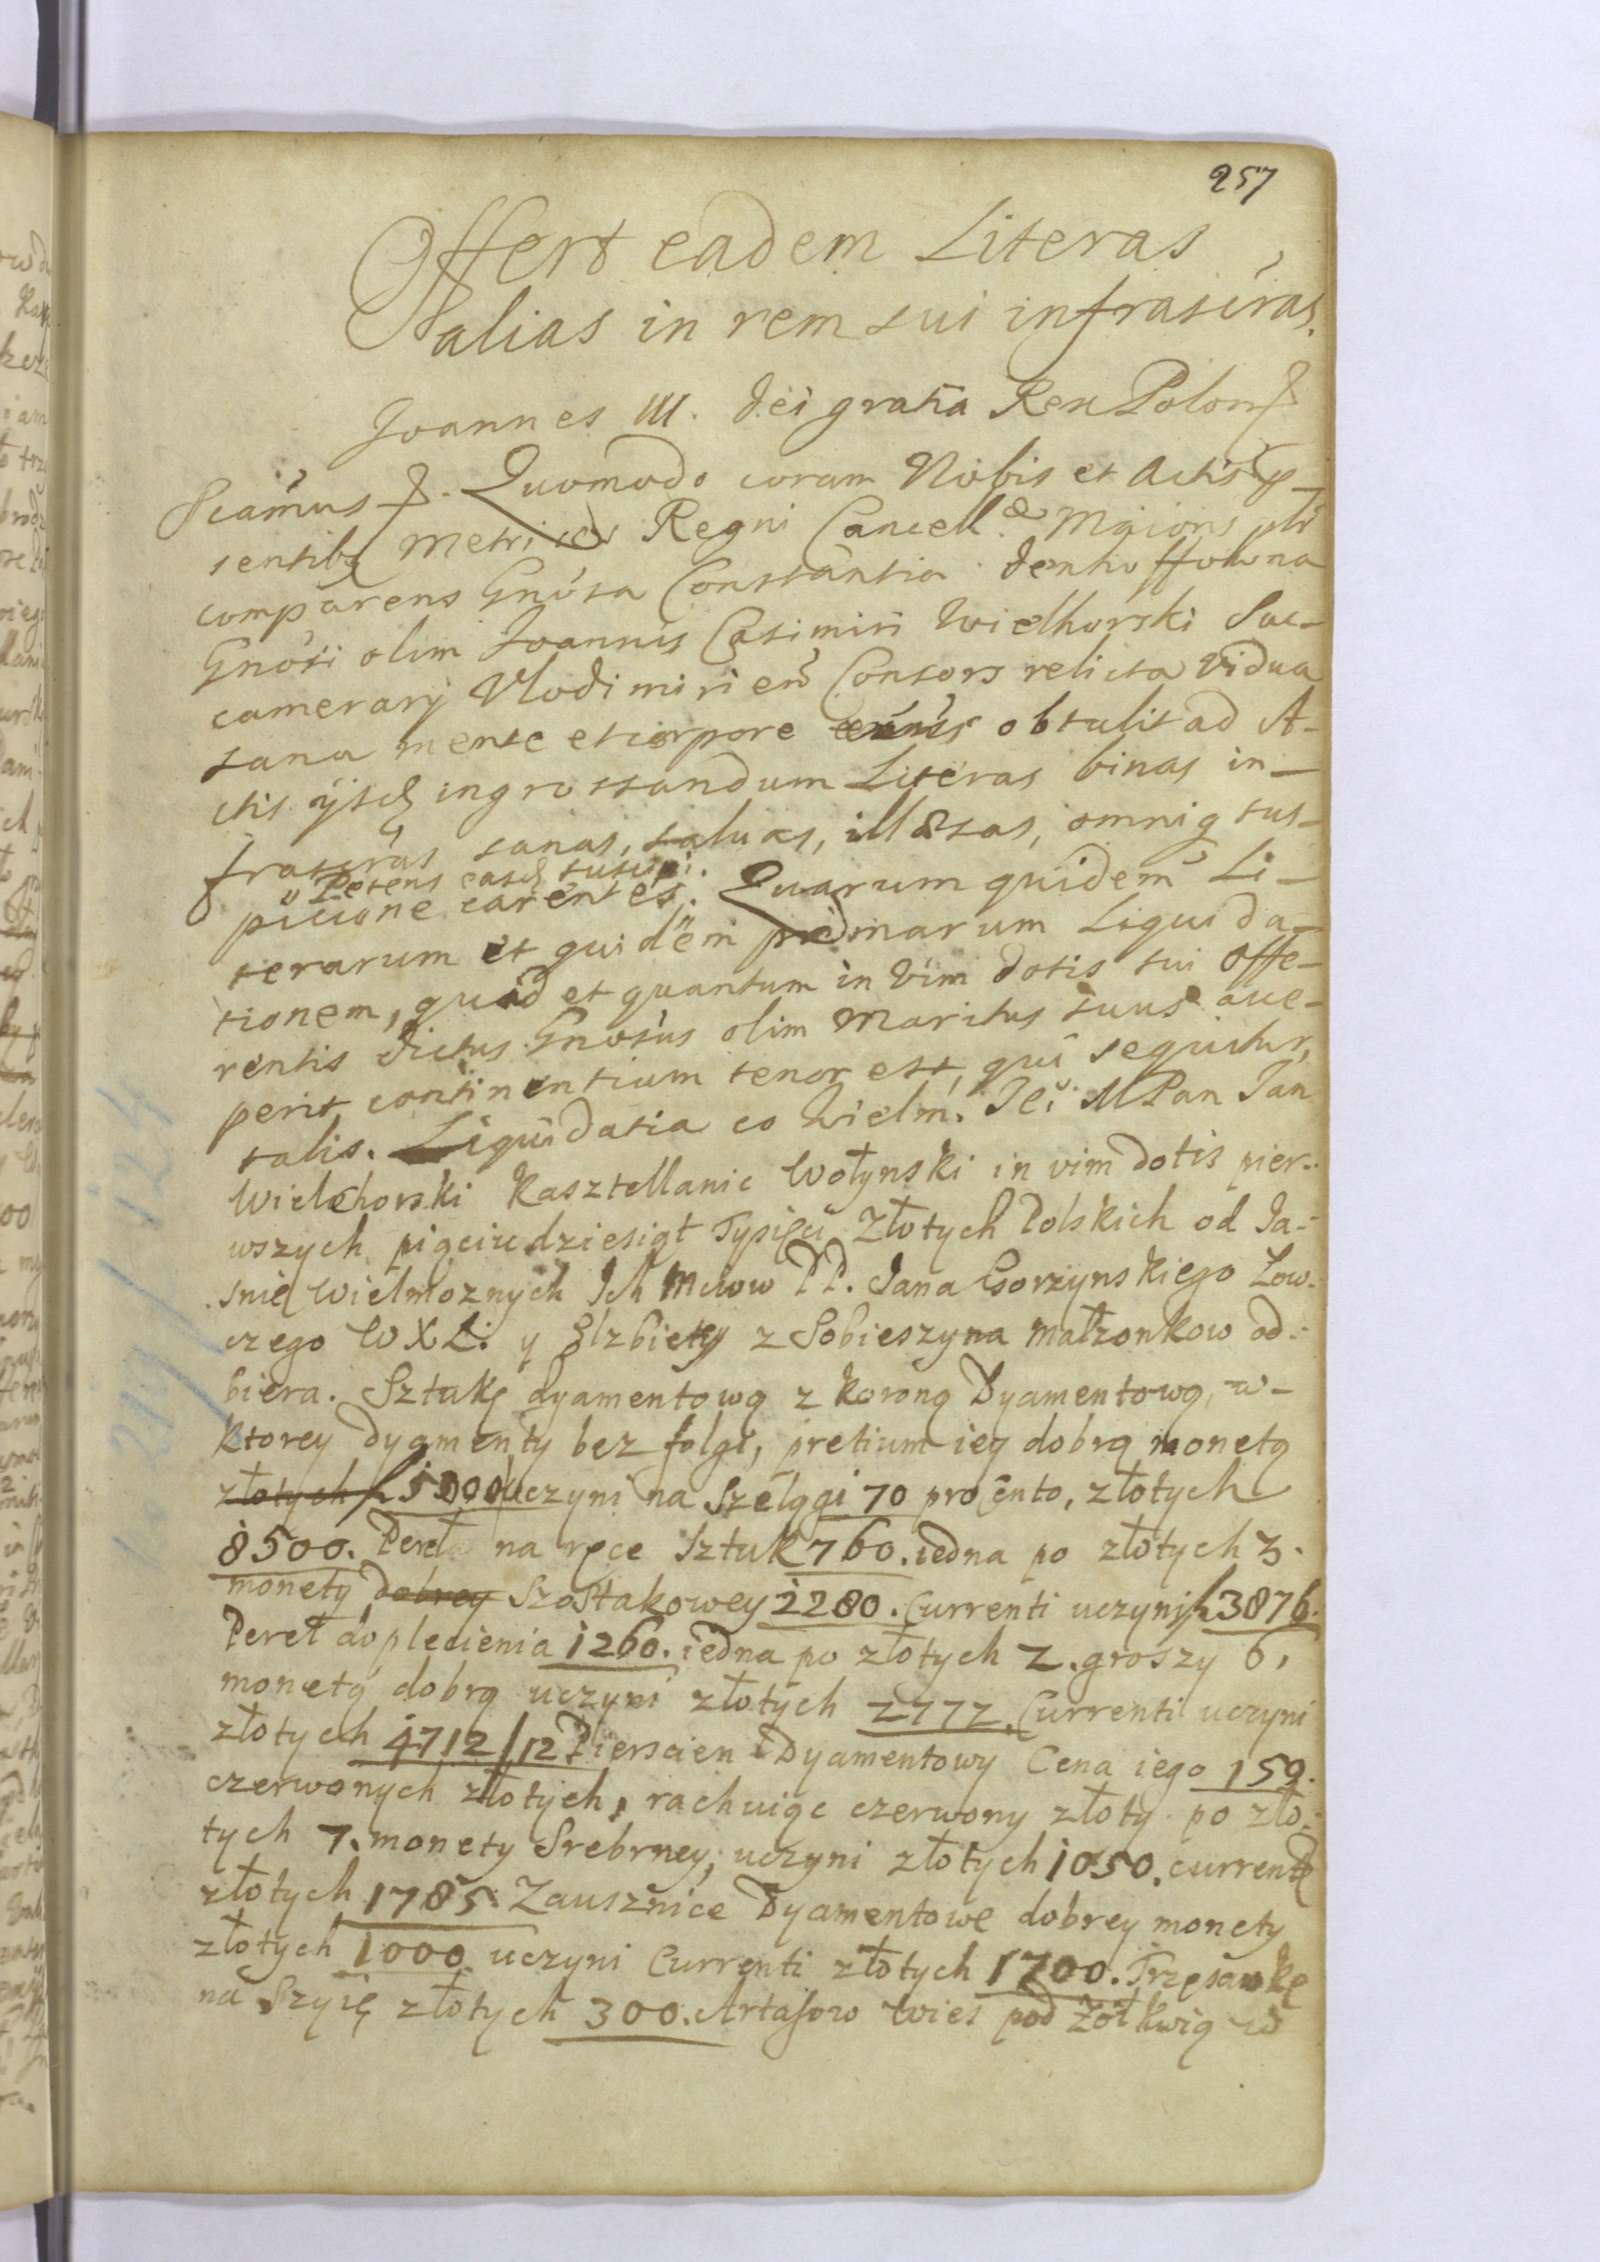 257
Offert eadem Literas
alias in rem sui infrascras.
Joannes III. Dei gratia Rex Polon
Scamus. Quomodo coram Nobis et Actis p-
sentibq Metrices Regni Cancell. Mgioris
comparens Gnosa Constantia Denhoffowna
Gnosi olim Joannis Casimiri Wielhorski Suc-
camerarij Vlodimirien Consors relicta Vidua
sana mente et corpore exns obtulit ad A-
ctis ijsdq ingrossandum Literas binas in-
frascras sanas, saluas, illæsas, omniq sus-
Petens easdq suscipi.
picione carentes. Quarum quidem Li-
terarum et quidem primarum Liquida-
tionem, quid et quantum in Vim dotis sui offe-
rentis dictus Gnosus olim Maritus suus acce-
perit continentium tenor est, qui sequitur,
talis. Liquidatia co Wielm. Iei M Pan Jan
Wielchorski Kasztellanic Wołynski in vim dotis pier-
wszych pięciudziesiąt Tysięcy Złotych Polskich od Ja-
snie Wielmoznych Ich Mciow PP. Jana Gorzynskiego Low-
czego WXL. y Elzbiety z Sobieszyna Małzonkow od-
biera. Sztukę dyamentową z koroną Dyamentową, w-
ktorey Dyamenty bez folgi, pretium iey dobrą monetą
złotych f 5000 uczyni na Szelągi 70 pro Cento, złotych
8500. Pereł na ręce Sztuk 760. iedna po złotych 3.
monety dobrey Szostakowey 2280. Currenti uczyni f 3876.
Pereł do plecienia 1260. iedna po złotych 2. groszy 6,
monetą dobrą uczyni złotych 2772. Currenti uczyni
złotych 4712/12 Pierscien Dyamentowy Cena iego 150.
czerwonych złotych, rachuiąc czerwony złoty po zło-
tych 7. monety Srebrney, uczyni złotych 1050. currenti
złotych 1785. Zausznice Dyamentowe dobrey monety
złotych 1000 uczyni Currenti złotych 1700. Trzęsawkę
na Szyię złotych 300. Artasow Wies pod Zołkwią w